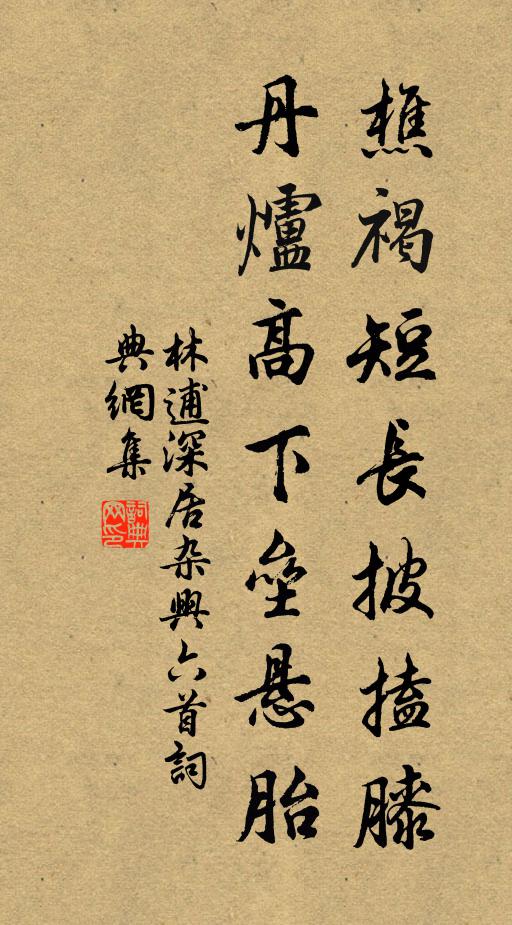 樵褐短長披搕膝
丹爐高下壘悬胎
林逋深居杂興六首詞
典網集
詞典
网印